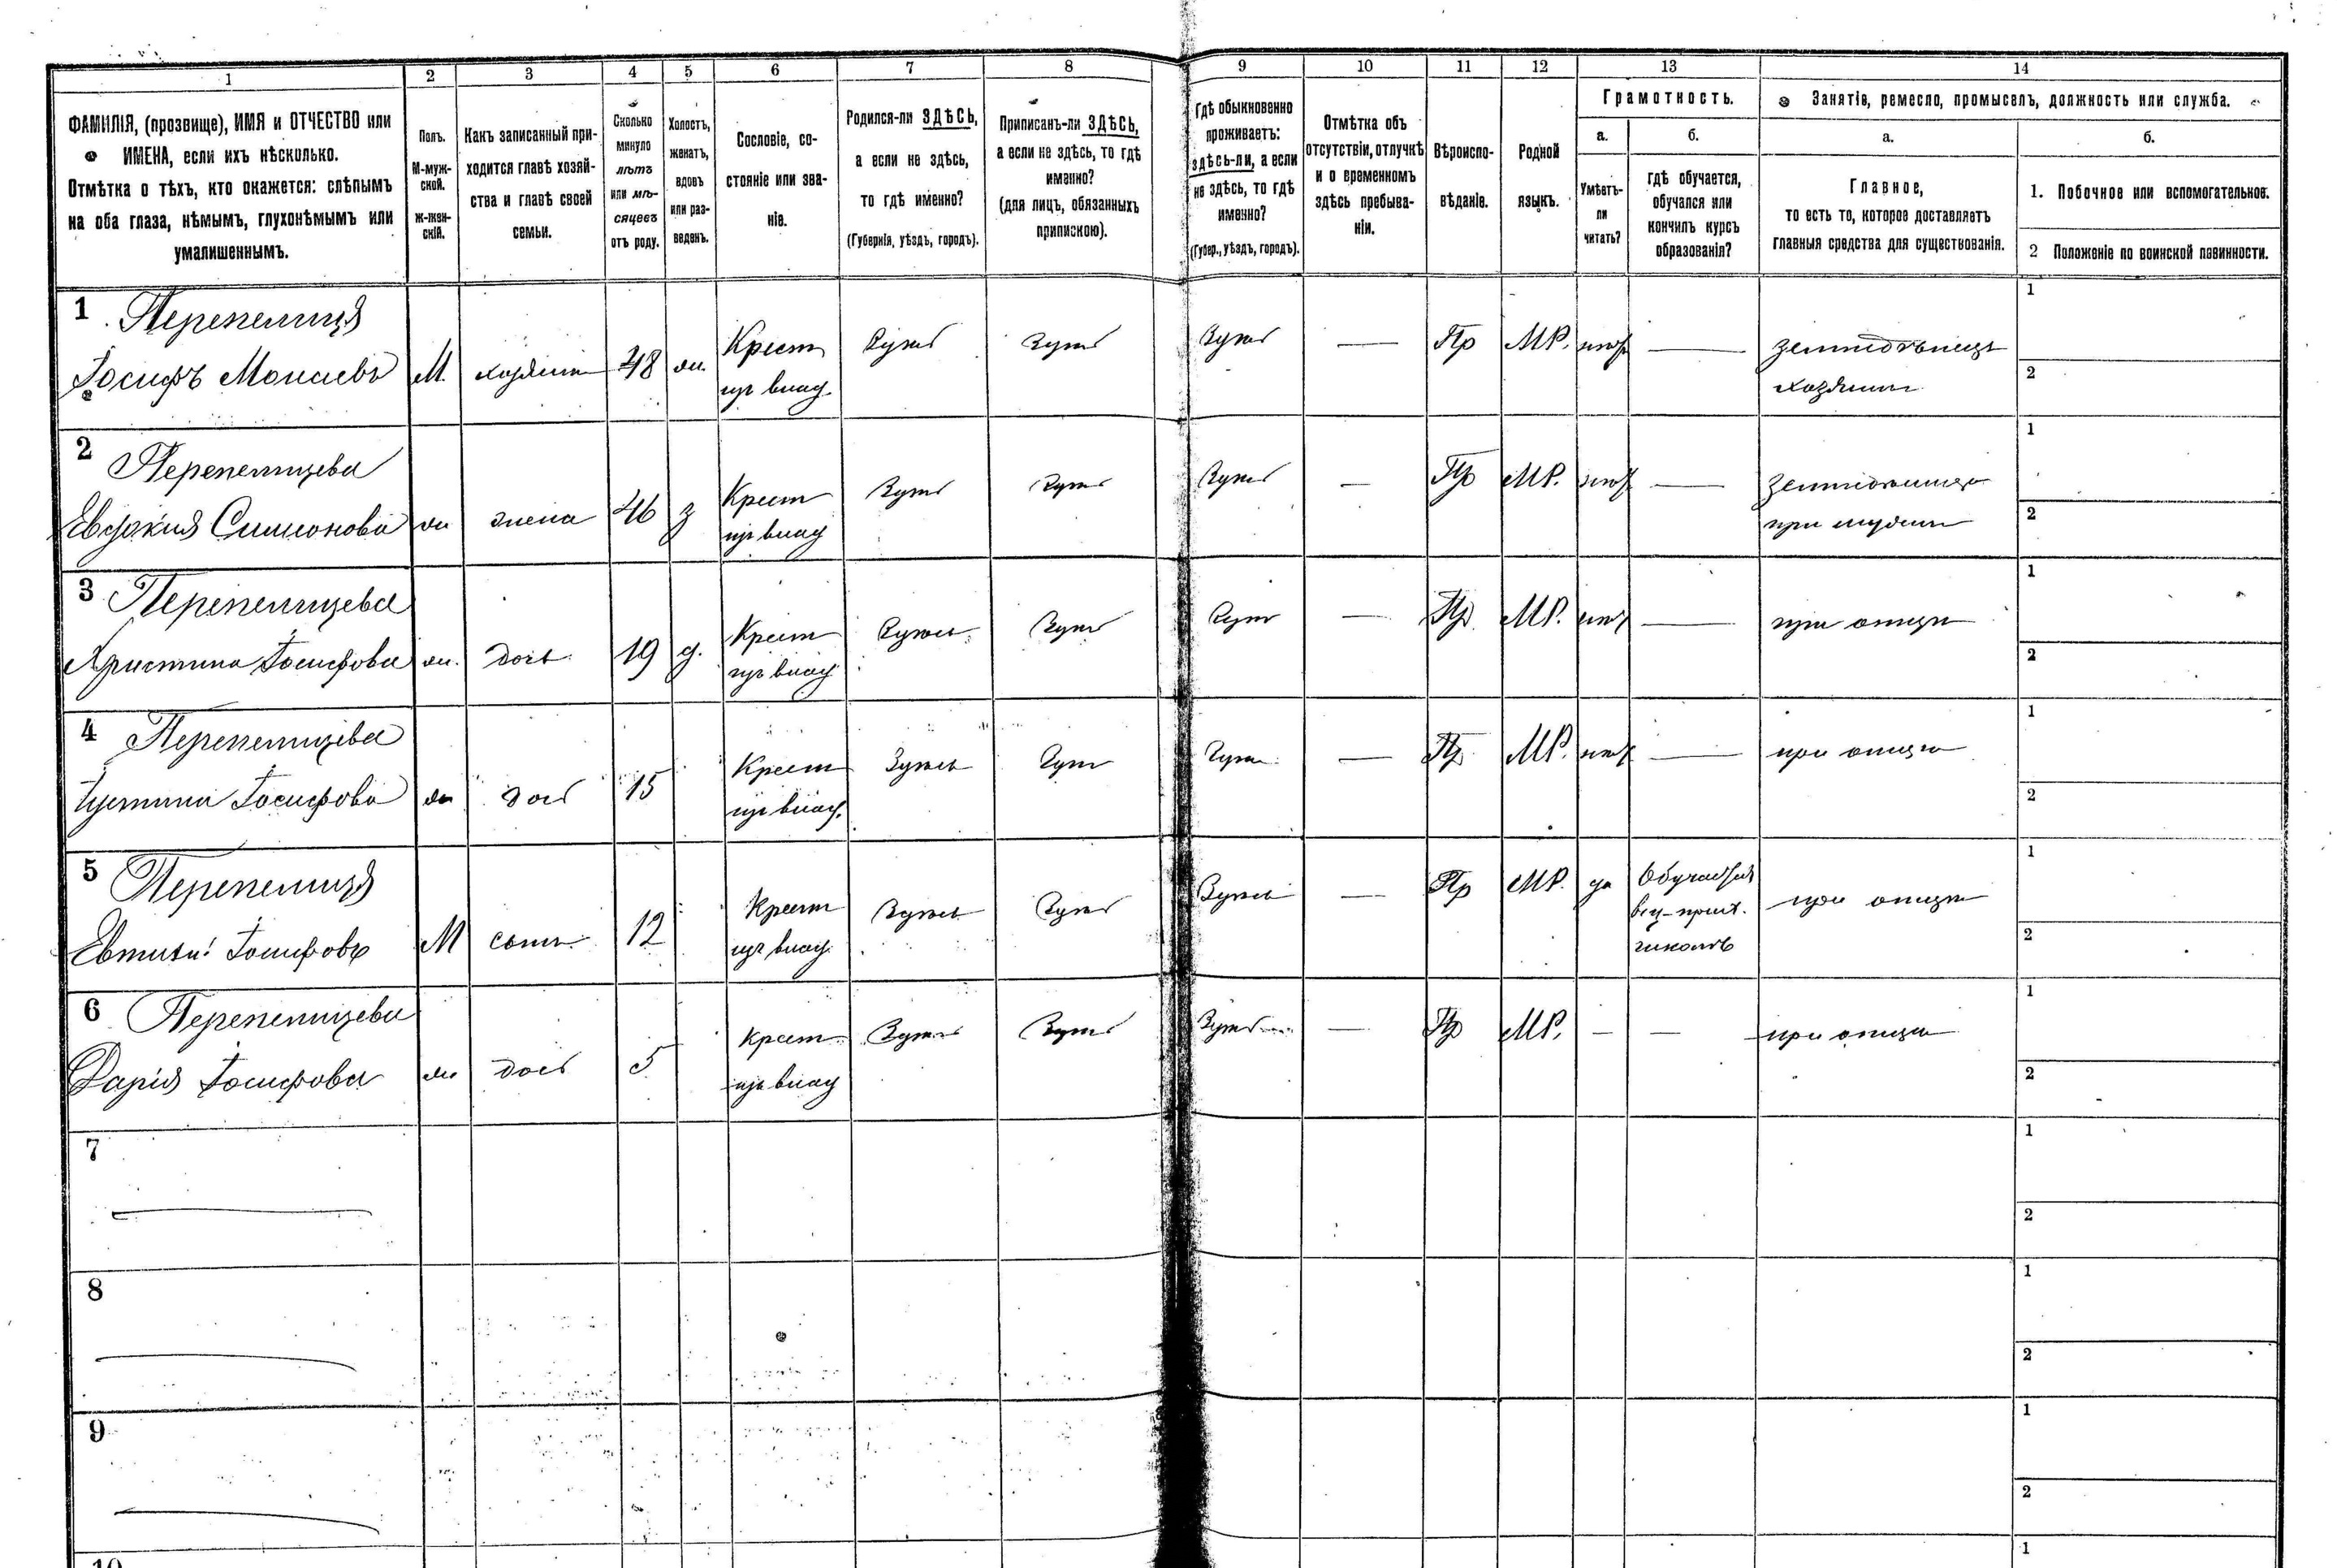 1 2 3 4 5 6 7 8 9 10 11 12 13 14
ФАМИЛІЯ, (прозвище), ИМЯ и ОТЧЕСТВО или
ИМЕНА, если ихъ нѣсколько.
Отмѣтка о тѣхъ, кто окажется: слѣпымъ
на оба глаза, нѣмымъ, глухонѣмымъ или
умалишеннымъ.
Полъ.
М-муж-
ской.
Ж-жен-
скій.
Какъ записанный при-
ходится главѣ хозяй-
ства и главѣ своей
семьи.
Сколько
минуло
лѣтъ
или мѣ-
сяцевъ
отъ роду.
Холостъ,
женатъ,
вдовъ
или раз-
веденъ.
Сословіе, со-
стояніе или зва-
ніе.
Родился-ли ЗДѢСЬ,
а если не здѣсь,
то гдѣ именно?
(Губернія, уѣздъ, городъ).
Приписанъ-ли ЗДѢСЬ,
а если не здѣсь, то гдѣ
именно?
(для лицъ, обязанныхъ
припискою).
Гдѣ обыкновенно
проживаетъ:
здѣсь-ли, а если
не здѣсь, то гдѣ
именно?
(Губер., уѣздъ, городъ).
Отмѣтка объ
отсутствіи, отлучкѣ
и о временномъ
здѣсь пребыва-
ніи.
Вѣроиспо-
вѣданіе.
Родной
языкъ.
Грамотность.
а.
Умѣетъ-
ли
читать?
б.
гдѣ обучается,
обучался или
кончилъ курсъ
образованія?
Занятіе, ремесло, промыселъ, должность или служба.
а.
Главное,
то есть то, которое доставляетъ
главныя средства для существованія.
б.
1. Побочное или вспомогательное.
2 Положеніе по воинской повинности.
1 Перепелиця
Іосифъ М. хозяинъ 48 ж. Крест. Здѣсь Здѣсь Здѣсь — Пр МР. нѣтъ — земледѣлецъ 1
изъ влад. хозяинъ 2
2 Перепелицева
Евдокия Симионова ж жена 46 з Крест Здѣсь Здѣсь Здѣсь — Пр МР. нѣтъ — 1
изъ влад при мужѣ 2
3 Перепелицева
Христина Іосифова ж. дочь 19 д. Крест Здѣсь Здѣсь Здѣсь — Пр МР. нѣтъ — при отцѣ 1
изъ влад 2
4 Перепелицева
Іустина Іосифова ж дочь 15 Крест Здѣсь Здѣсь Здѣсь — Пр МР. нѣтъ — при отцѣ 1
изъ влад. 2
5 Перепелиця
Евтихі Іосифовъ М сынъ 12 Крест Здѣсь Здѣсь Здѣсь — Пр МР. да Обучается при отцѣ 1
изъ влад. в ц-прих. 2
школѣ
6 Перепелицева
Дарія Іосифова ж дочь 5 Крест Здѣсь Здѣсь Здѣсь — Пр МР. — — при отцѣ 1
изъ влад 2
7 1
2
8 1
2
9 1
2
10 1